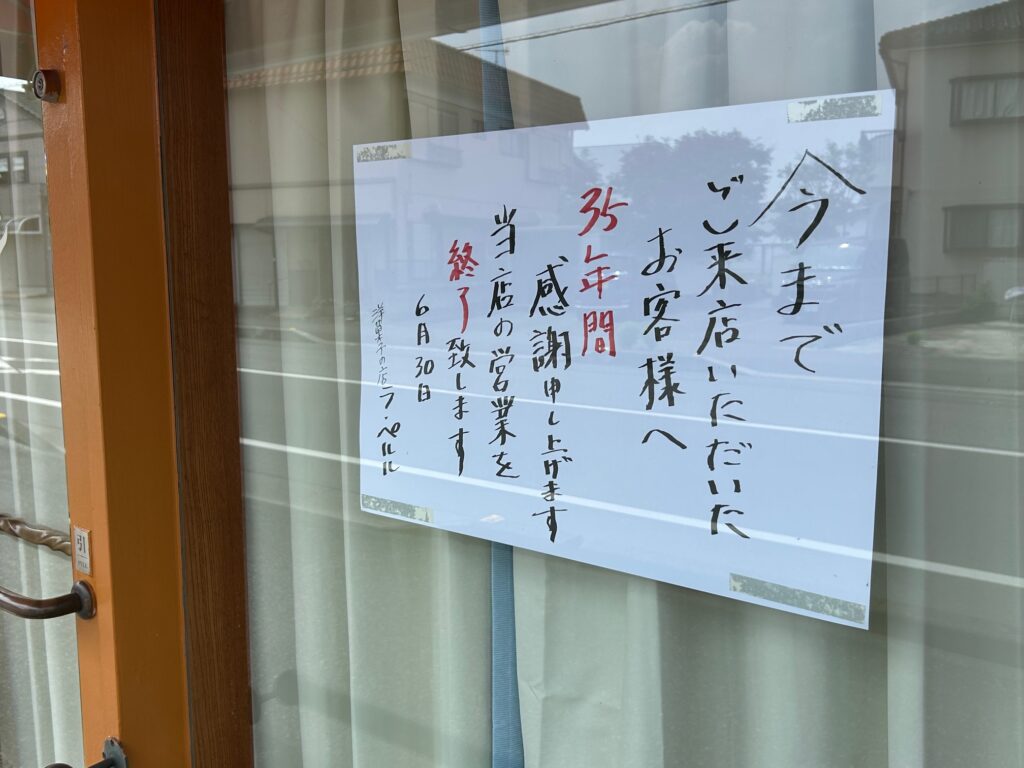 今まで
ご来店いただいた
お客様へ
35年間
感謝申し上げます
当店の営業を
終了致します
6月30日
洋菓子の店 ラ・ペルル
引